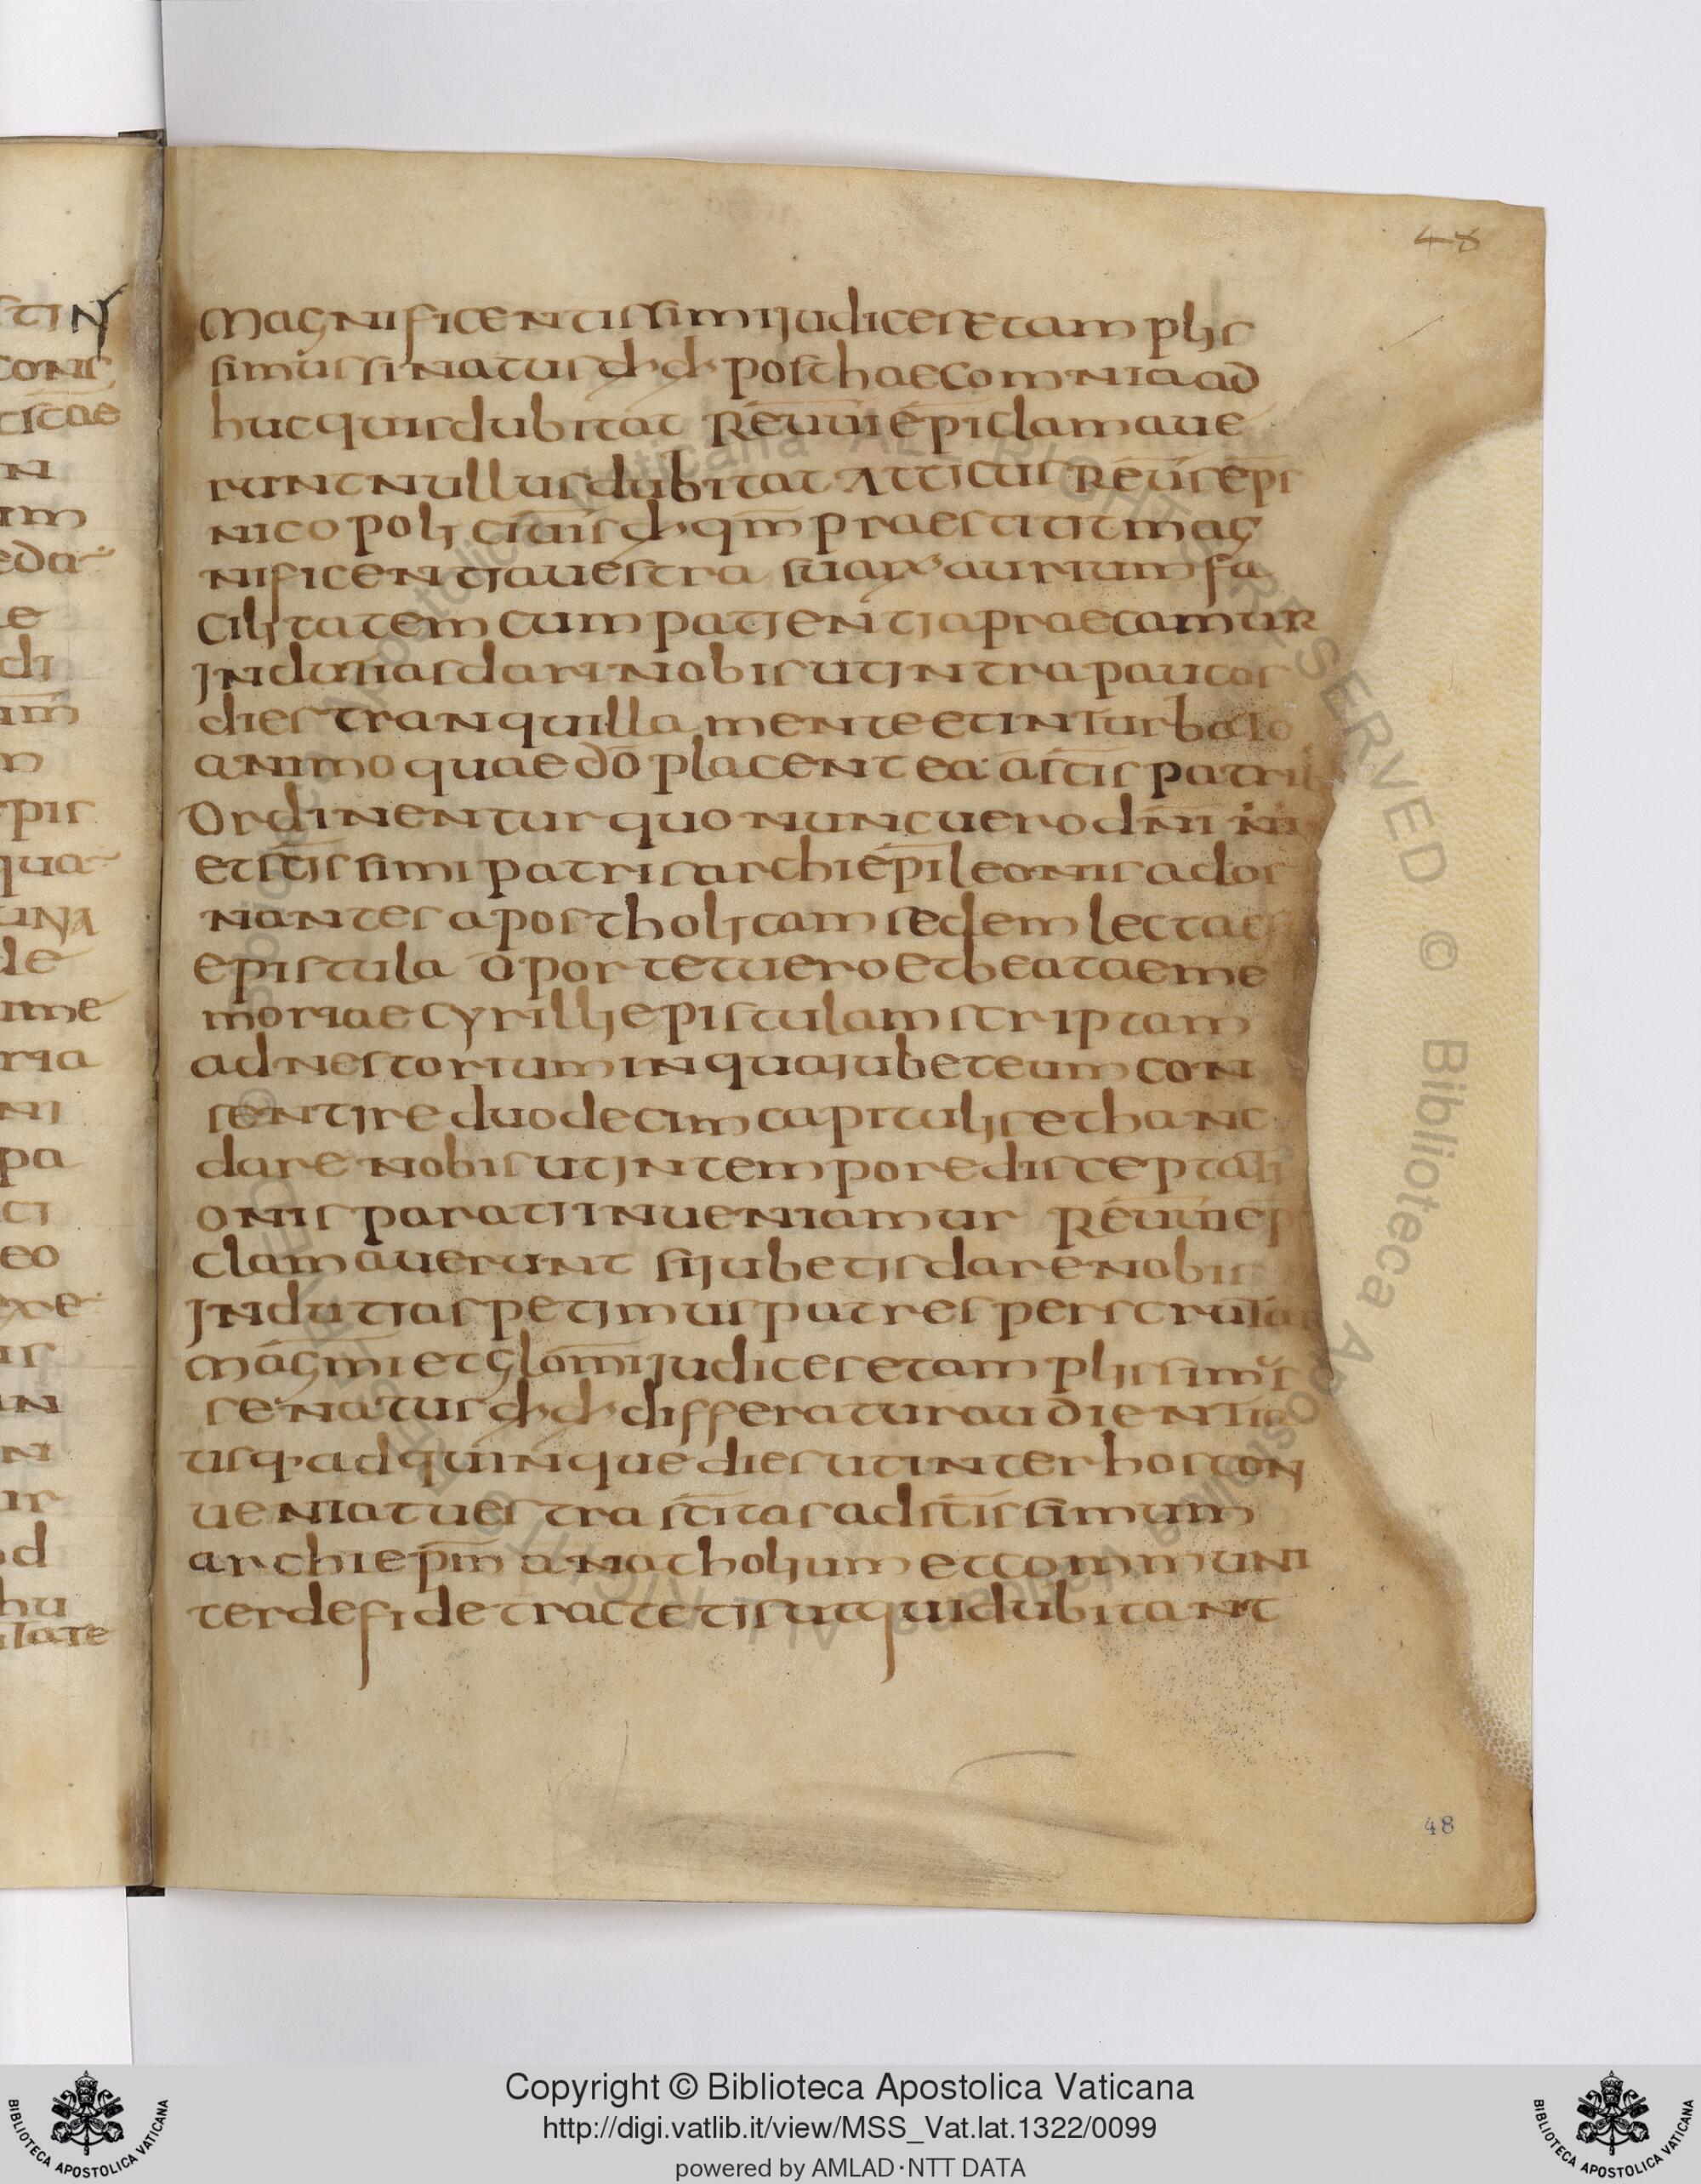 48
magnificentissimi judices et amplis
simus sinatus dd post haec omnia ad
huc quis dubitat reuui epi clamaue
runt nullus dubitat Atticus reuis eps
nicopolj ciuis d qm praestitit mag
nificentja uestra suax aurium fa
ciljtatem cum patjentja praecamur
jndutias dari nobis utj intra paucos
dies tranquilla mente et inturbato
animo quae do placent ea a stis patrib
ordinentur quo nunc uero dni
et stissimi patris archiepi leonis ador
nantes apostholjcam sedem lecta es
epistula oportet uero et beatae me
moriae cyrillj epistulam scriptam
ad nestorium in qua jubet eum con
sentjre duodecim capitulis et hanc
dare nobis utj in tempore disceptatj
onis paratj inueniamur reuini ep
clamauerunt si jubetis dare nobis
jndutias petimus patres perscruta
magmi et glomi judices et amplissimus
senatus dd differatur audientia
usq ad quinque dies ut inter hos con
ueniat uestra stitas ad stissimum
archiepm anatholjum et commumi
ter de fide tractetis ut qui dubitant
48
Copyright © Biblioteca Apostolica Vaticana
http://digi.vatlib.it/view/MSS_Vat.lat.1322/0099
powered by AMLAD·NTT DATA
BIBLIOTECA APOSTOLICA VATICANA
BIBLIOTECA APOSTOLICA VATICANA